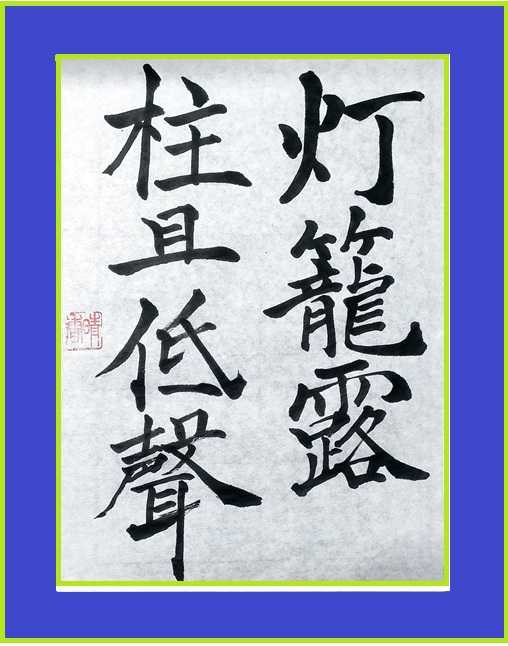 灯籠露
柱且低聲